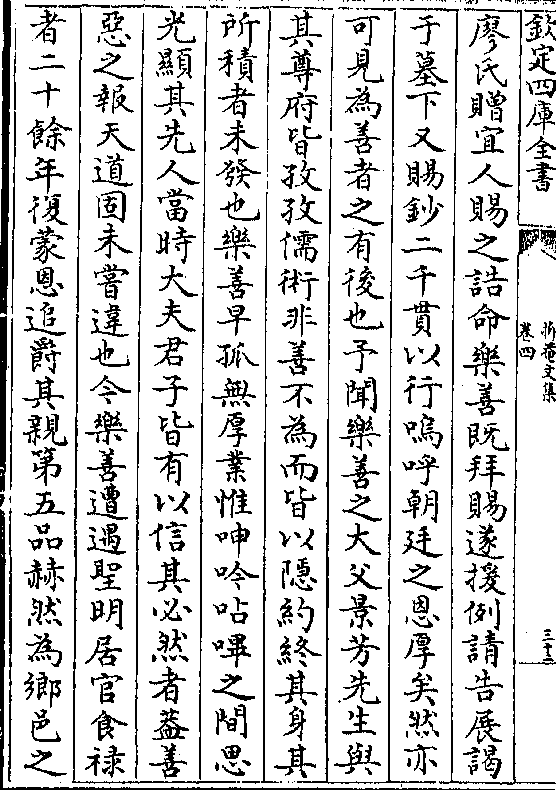 欽定四庫全書
卷四
三十三
廖氏贈宜人賜之誥命樂善既拜賜遂援例請告展謁
于墓下又賜鈔二千貫以行嗚呼朝廷之恩厚矣然亦
可見為善者之有後也予聞樂善之大父景芳先生與
其尊府皆孜孜儒術非善不為而皆以隱約終其身其
所積者未發也樂善早孤無厚業惟呻吟呫嗶之間思
光顯其先人當時大夫君子皆有以信其必然者葢善
惡之報天道固未嘗違也今樂善遭遇聖明居官食祿
者二十餘年復蒙恩追爵其親第五品赫然為鄉邑之